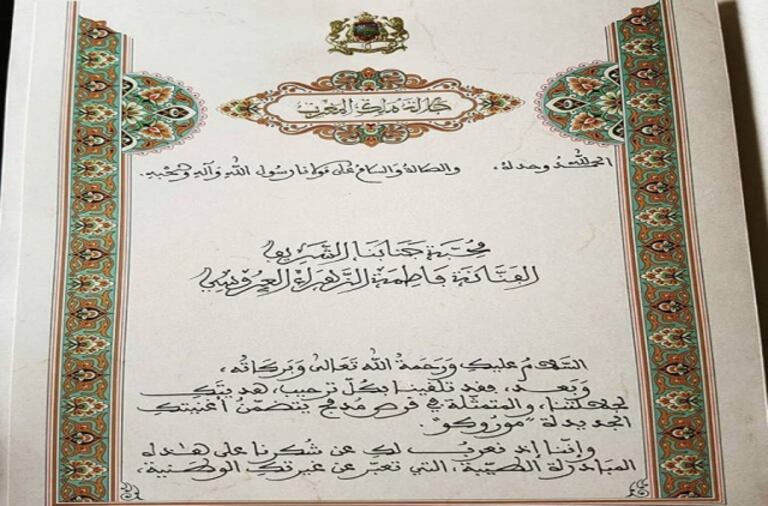 جلالة ملك المغرب
الحمد لله وحده، والصلاة والسلام على مولانا رسول الله وآله وصحبه.
مُحبّة جنابنا الشّريف
الفنّانة فاطمة الزّهراء العروسي
السّلامُ عليكِ ورَحمةُ اللّه تَعَالىٰ وبَركاتُه،
وبَعد، فقد تلقّينا بكلّ ترحيب، هديّتَكِ
لجلالتنا، والمتمثلة في قرص مُدمج يتضمّنُ أغنيتكِ
الجديدة "موروكو".
وإنّنا إذ نعربُ لكِ عن شكرنا على هذه
المبادرة الطّيّبة، التي تعبّر عن غيرتكِ الوطنية،